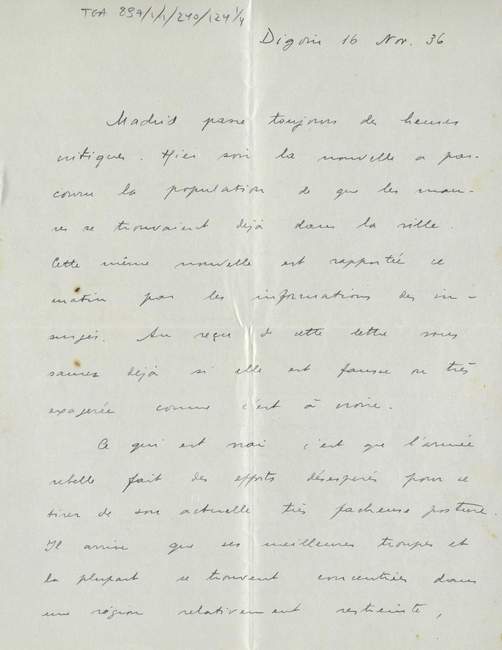 TGA 897/1/1/240/124 1/4
Digoin 16 Nov. 36
Madrid passe toujours des heures
critiques. Hier soir la nouvelle a par-
couru la population de que les mau-
res se trouvaient déjà dans la ville.
Cette même nouvelle est rapportée ce
matin par les informations des in-
surgés. Au reçu de cette lettre vous
saurez déjà si elle est fausse ou très
exagérée comme c'est à croire.
Ce qui est vrai c'est que l'armée
rebelle fait des efforts désesperés pour se
tirer de son actuelle très facheuse posture.
Il arrive que ses meilleures troupes et
la plupart se trouvent concentrées dans
une région relativement restreinte,